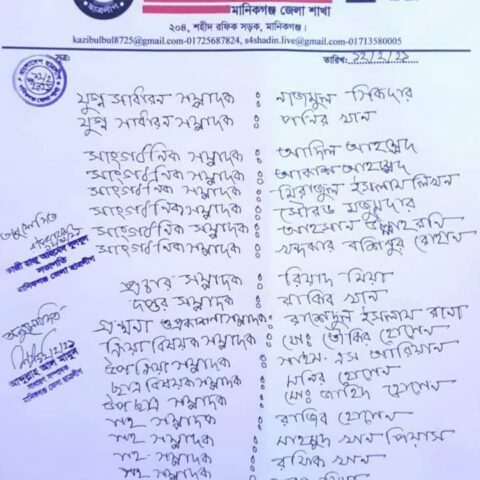 মানিকগঞ্জ জেলা শাখা
২০৪, শহীদ রফিক সড়ক, মানিকগঞ্জ।
kazibulbul8725@gmail.com-01725687824, s4shadin.live@gmail.com-01713580005
সূত্রঃ তারিখঃ ১২/২/২১
যুগ্ম সাধারন সম্পাদক : নাজমুল সিকদার
যুগ্ম সাধারন সম্পাদক : পানির খান
সাংগঠনিক সম্পাদক : আদিল আহমেদ
সাংগঠনিক সম্পাদক : আকাশ আহমেদ
সাংগঠনিক সম্পাদক : মিরাজুল ইসলাম লিখন
সাংগঠনিক সম্পাদক : সৌরভ মজুমদার
সাংগঠনিক সম্পাদক : আহসান উল্লাহ রনি
সাংগঠনিক সম্পাদক : খন্দকার রোহান
অনুমোদিত
সভাপতি
মানিকগঞ্জ জেলা ছাত্রলীগ
প্রচার সম্পাদক : রিয়াদ মিয়া
দপ্তর সম্পাদক : রাকিব খান
গ্রন্থনা ও প্রকাশনা সম্পাদক : রাশেদুল ইসলাম রানা
ক্রিয়া বিষয়ক সম্পাদক : মোঃ তৌকির হোসেন
উপ ক্রিয়া সম্পাদক : এস আরিয়ান
ছাত্র বিষয়ক সম্পাদক : মনির হোসেন
উপ ছাত্র সম্পাদক : মোঃ জাহিদ হোসেন
অনুমোদিত
আব্দুল্লাহ আল মামুন
সাধারণ সম্পাদক
মানিকগঞ্জ জেলা ছাত্রলীগ
সহ সম্পাদক : রাজিব হোসেন
সহ সম্পাদক : মাহমুদ খান পিয়াস
সহ সম্পাদক : রফিক খান
সহ সম্পাদক :